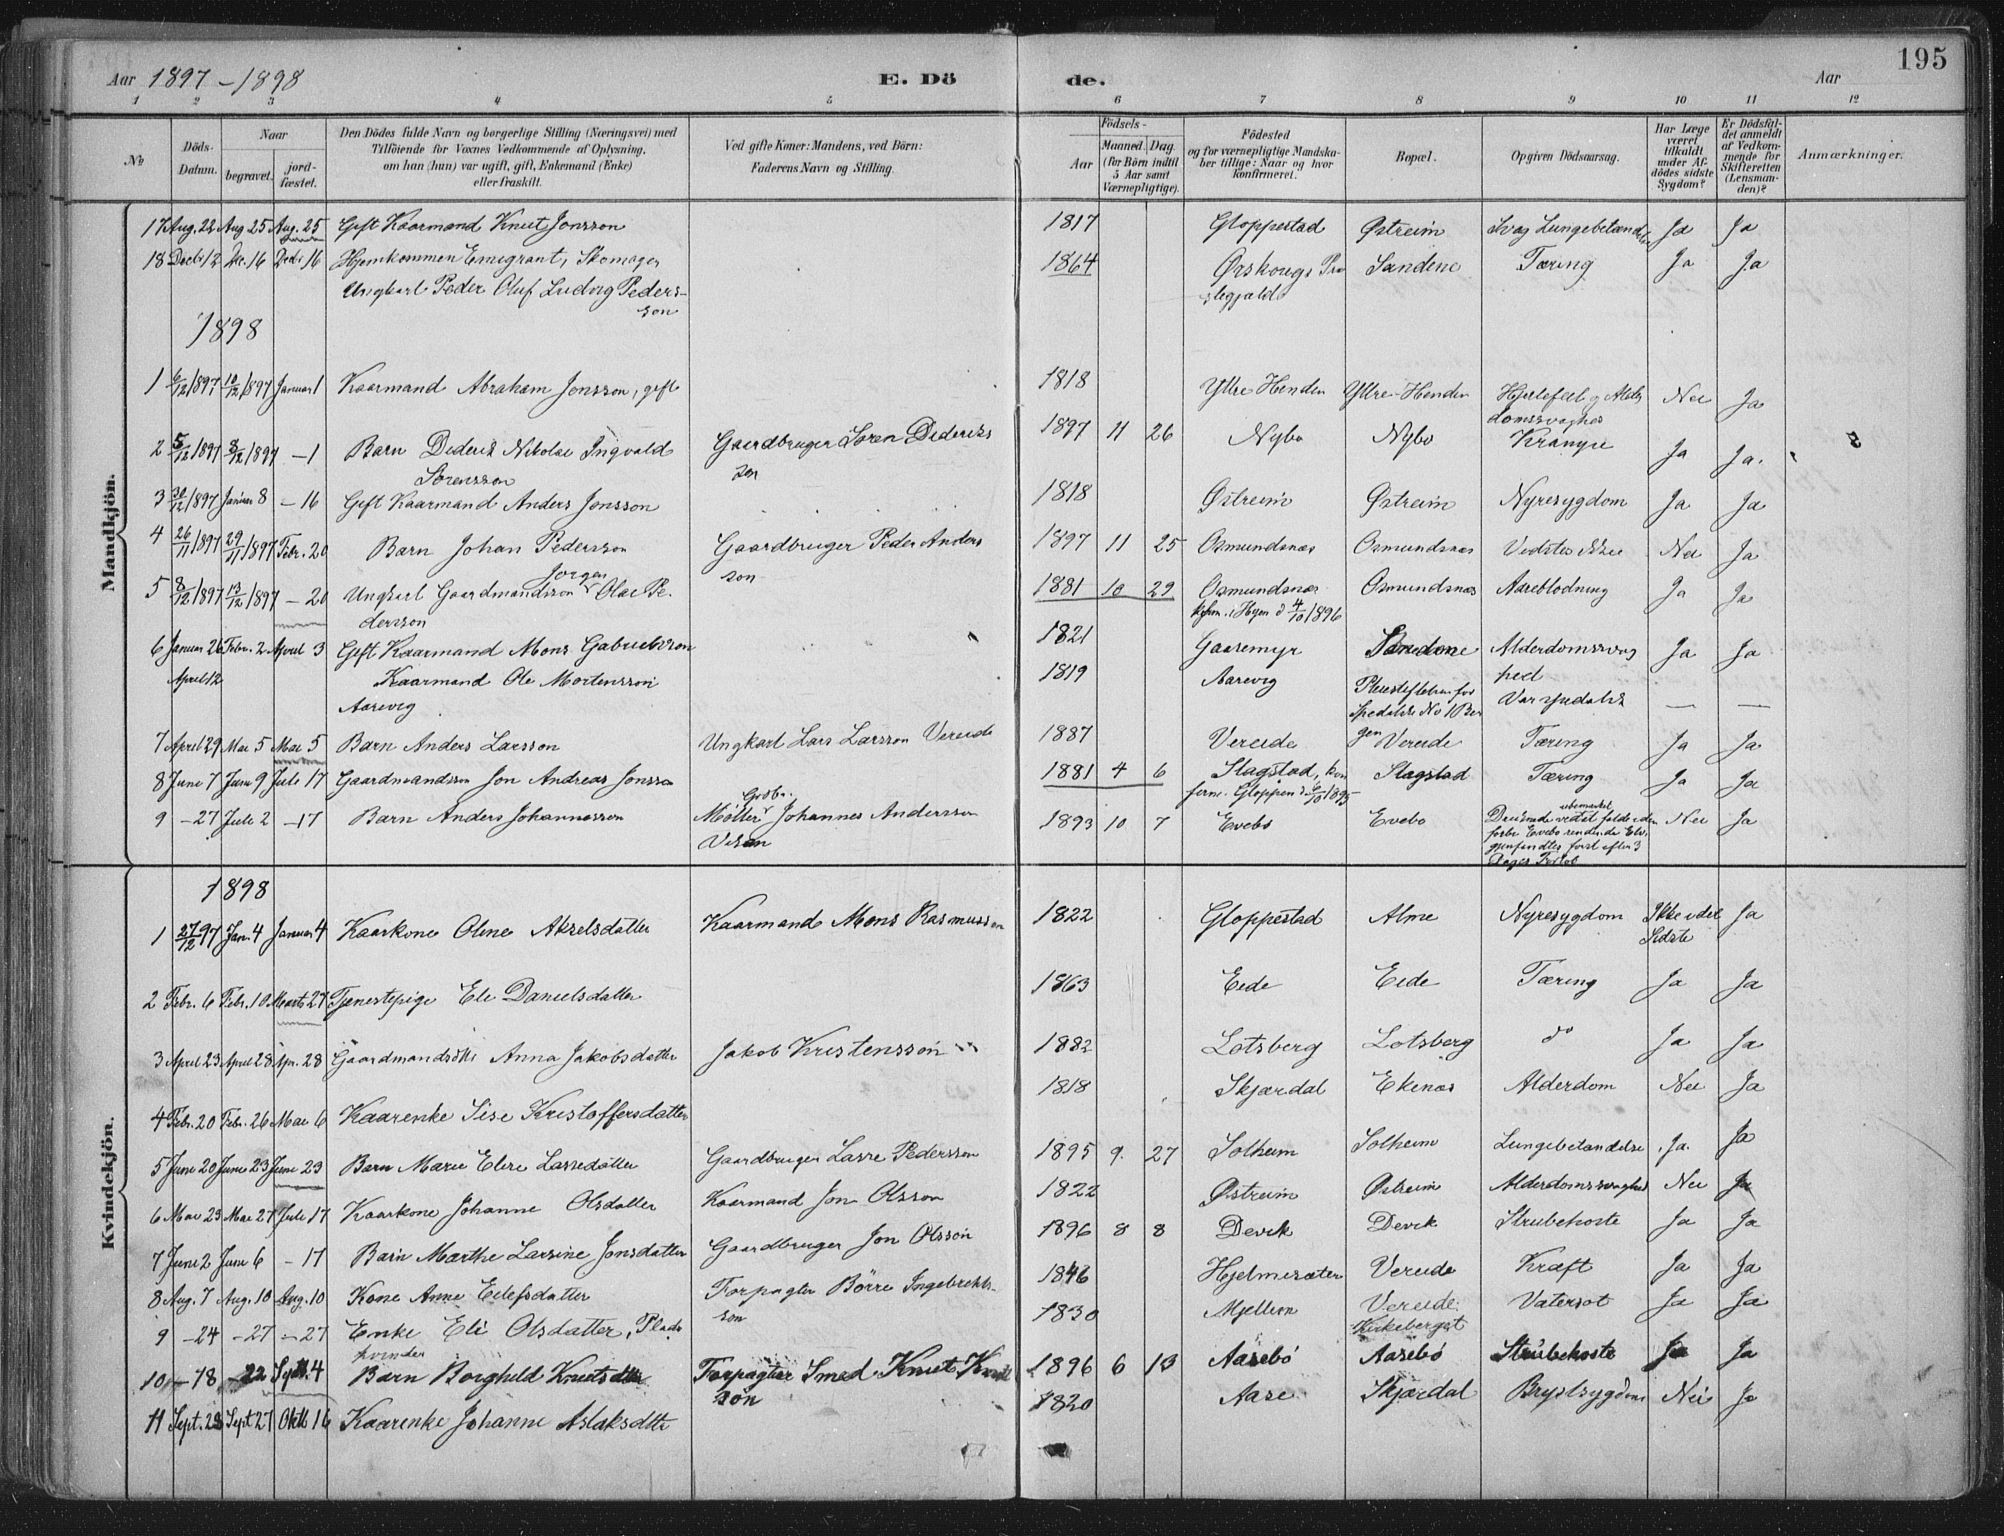 195
Aar 1897–1898 E. Dö de. Aar
1 2 3 4 5 6 7 8 9 10 11 12
№
Döds-Datum.
Naar begravet. jordfæstet.
Den Dödes fulde Navn og borgerlige Stilling (Næringsvei) med
Tilföiende for Voxnes Vedkommende af Oplysning,
om han (hun) var ugift, gift, Enkemand (Enke)
eller fraskilt.
Ved gifte Koner: Mandens, ved Börn:
Faderens Navn og Stilling.
Födsels-
Aar
Maaned. Dag.
(for Börn indtil
5 Aar samt
Værnepligtige).
Födested
og for værnepligtige Mandskaber tillige: Naar og hvor
konfirmeret.
Bopæl.
Opgiven Dödsaarsag.
Har Læge
været
tilkaldt
under Afdödes sidste
Sygdom?
Er Dödsfaldet anmeldt
af Vedkommende for
Skifteretten
(Lensmanden)?
Anmærkninger.
Mandkjön.
17 Aug. 22 Aug 25 Aug. 25 Gift Kaarmand Knut Jonsson 1817 Gloppestad Østreim Svag Lungebetændelse Ja Ja
18 Decbr 12 Dec. 16 Decbr 16 Hjemkommen Emigrant, Skomager 1864 Ørskougs Pra Sandene Tæring Ja Ja
Ungkarl Peder Oluf Ludvig Peders- stegjæld
son
1898
1 6/12 1897 10/12 1897 Januar 1 Kaarmand Abraham Jonsson, gift 1818 Ytre Henden Ytre-Henden Hjertefeil og Alder Nei Ja
domssvaghed
2 5/12 1897 8/12 1897 – 1 Barn Diderik Nikolai Ingvald Gaardbruger Søren Dideriks 1897 11 26 Nybø Nybø Ja Ja.
Sørensson son
3 30/12 1897 Januar 8 – 16 Gift Kaarmand Anders Jonsson 1818 Østreim Østreim Nyresygdom Ja Ja
4 26/11 1897 29/11 1897 Febr. 20 Barn Johan Pedersson Gaardbruger Peder Anders 1897 11 25 Osmundsnæs Osmundsnæs Vidstes ikke Nei Ja
son
5 8/12 1897 13/12 1897 – 20 Ungkarl Gaardmandsson Jørgen Olai Pe- 1881 10 29 Osmundsnæs Osmundsnæs Aareblødning Ja Ja
dersson kfirm. i Hyen d 4/10 1896
6 Januar 26 Febr. 2 April 3 Gift Kaarmand Mons Gabrielsson 1821 Gaasemyr Sandene Alderdomssvag Ja Ja
hed
April 12 Kaarmand Ole Mortensson 1819 Aarevig Pleiestiftelsen for Var spedalsk — —
Aarevig Spedalske No 1 Ber
gen
7 April 29 Mai 5 Mai 5 Barn Anders Larsson Ungkarl Lars Larsson Vereide 1887 Vereide Vereide Tæring Ja Ja
8 Juni 7 Juni 9 Juli 17 Gaardmandsson Jon Andreas Jonsson 1881 4 6 Slagstad, kon Slagstad Tæring Ja Ja
firm. Gloppen d 6/10 1895
9 – 27 Juli 2 – 17 Barn Anders Johannesson Møller Grdbr. Johannes Andersson 1893 10 7 Evebø Evebø Druknede ubemærket ved at falde i den Nei Ja
forbi Evebø rendende Elv
gjenfandtes først efter 3
Dages Forløb
Kvindekjön.
1898
1 27/12 97 Jan. 4 Januar 4 Kaarkone Oline Akselsdatter Kaarmand Mons Rasmusson 1822 Gloppestad Alme Nyresygdom Ikke i det Ja
Sidste
2 Febr. 6 Febr. 10 Marts 27 Tjenestepige Eli Danielsdatter 1863 Eide Eide Tæring Ja Ja
3 April 23 April 28 Apr. 28 Gaardmandsdtr Anna Jakobsdatter Jakob Kristensson 1882 Lotsberg Lotsberg do Ja Ja
4 Febr. 20 Febr. 26 Mai 6 Kaarenke Sise Kristoffersdatter 1818 Skjærdal Ekenæs Alderdom Nei Ja
5 Juni 20 Juni 23 Juni 23 Barn Marie Eline Lassedatter Gaardbruger Lasse Pedersson 1895 9 27 Solheim Solheim Lungebetændelse Ja. Ja
6 Mai 23 Mai 27 Juli 17 Kaarkone Johanne Olsdatter Kaarmand Jon Olsson 1822 Østreim Østreim Alderdomssvaghed Nei Ja
7 Juni 2 Juni 6 – 17 Barn Marthe Larsine Jonsdatter Gaardbruger Jon Olsson 1896 8 8 Devik Devik Strubehoste Ja Ja
8 Aug. 7 Aug. 10 Aug. 10 Kone Anne Eilefsdatter Forpagter Børre Ingebrikts- 1846 Hjelmesæter Vereide Kræft Ja Ja
son
9 – 24 – 27 – 27 Enke Eli Olsdatter, Plads 1830 Mjellem Vereide Vatersot Ja Ja
kvinde Kirkeberget
10 – 18 – 22 Septb. 4 Barn Borghild Knutsdatter Forpagter Smed Knut Knut 1896 6 13 Aasebø Aasebø Strubehoste Ja Ja
son
11 Sept. 23 Sept 27 Oktb 16 Kaarenke Johanne Aslaksdttr 1820 Aase Skjærdal Brystsygdom Nei Ja